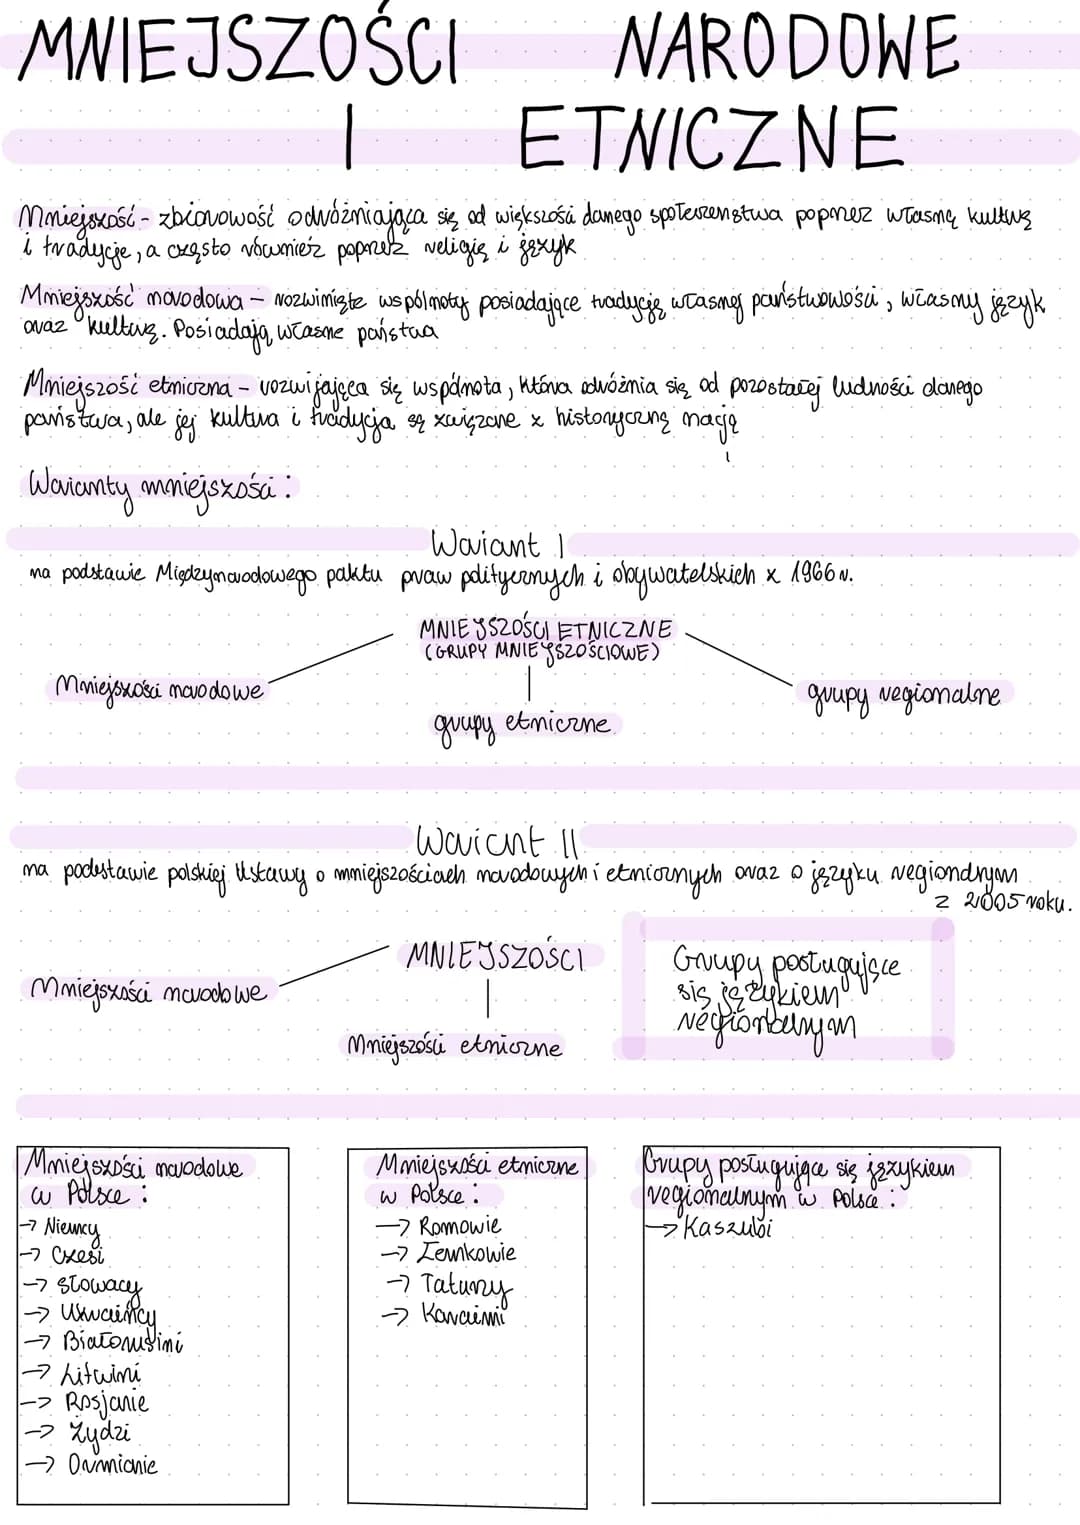 MNIEJSZOŚCI NARODOWE
I ETNICZNE
Mniejszość - zbiorowość odróżniająca się od większości danego społeczeństwa poprzez własną kulturę
i tradycje, a często również poprzez religię i język
Mniejszość narodowa - rozwinięte wspólnoty posiadające tradycję własnej państwowości, własny język
oraz kulturę. Posiadają własne państwa
Mniejszość etniczna - rozwijająca się wspólnota, która odróżnia się od pozostałej ludności danego
państwa, ale jej kultura i tradycja są związane z historyczną nacją
Warianty mniejszości:
Wariant I
na podstawie Międzynarodowego paktu praw politycznych i obywatelskich z 1966 r.
MNIEJSZOŚCI ETNICZNE
(GRUPY MNIEJSZOŚCIOWE)
Mniejszości narodowe
grupy etniczne
grupy regionalne
Wariant II
na podstawie polskiej Ustawy o mniejszościach narodowych i etnicznych oraz o języku regionalnym
z 2005 roku.
MNIEJSZOŚCI
Mniejszości narodowe
Mniejszości etniczne
Grupy posługujące
się językiem
regionalnym
Mniejszości narodowe
w Polsce:
→ Niemcy
→ Czesi
→ Słowacy
→ Ukraińcy
→ Białorusini
→ Litwini
→ Rosjanie
→ Żydzi
→ Ormianie
Mniejszości etniczne
w Polsce:
→ Romowie
→ Łemkowie
→ Tatarzy
→ Karaimi
Grupy posługujące się językiem
regionalnym w Polsce:
→ Kaszubi